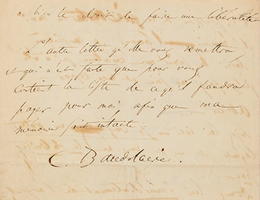 a bien le droit de faire une libéralité.
L'autre lettre qu'elle vous remettra,
et qui n'est faite que pour vous,
contient la liste de ce qu'il faudra
payer pour moi, afin que ma
mémoire soit intacte.
C. Baudelaire.